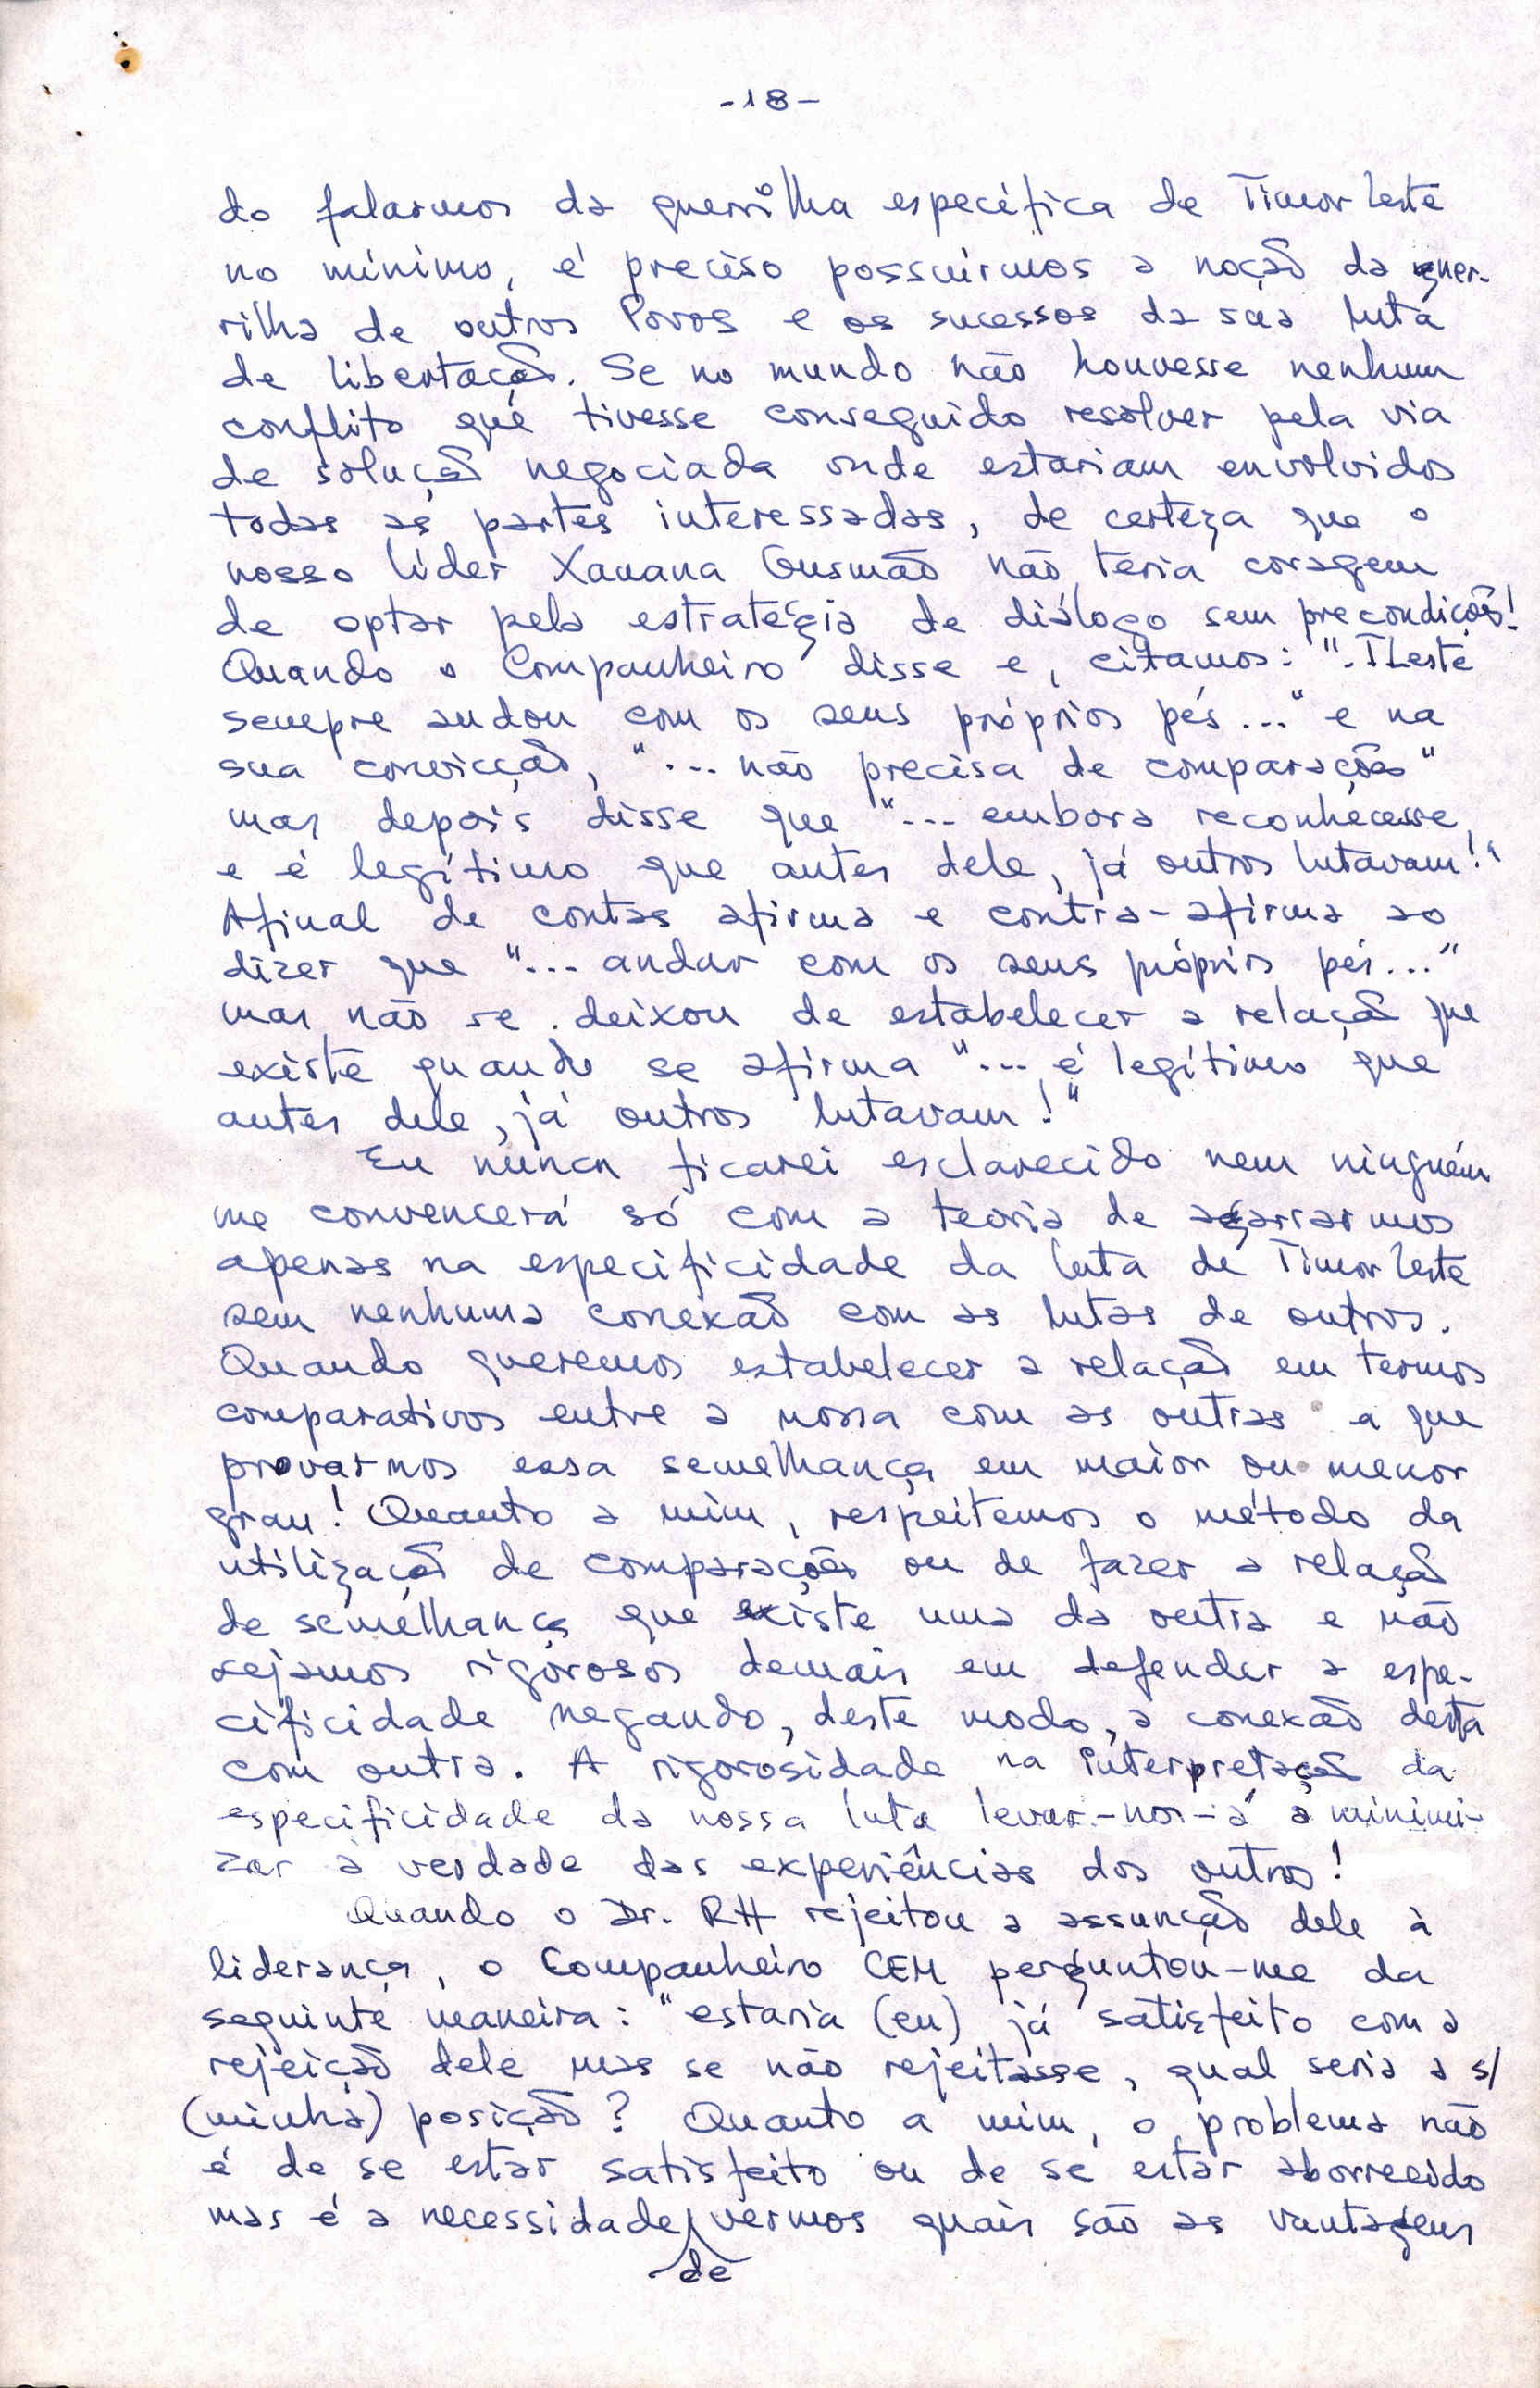 -18-
do falarmos da guerrilha específica de Timor Leste
no mínimo, é preciso possuirmos a noção da guer-
rilha de outros Povos e os sucessos da sua luta
de libertação. Se no mundo não houvesse nenhum
conflito que tivesse conseguido resolver pela via
de solução negociada onde estariam envolvidos
todas as partes interessadas, de certeza que o
nosso líder Xanana Gusmão não teria coragem
de optar pela estratégia de diálogo sem precondições!
Quando o Companheiro disse e, citamos: ". TLeste
sempre andou com os seus próprios pés..." e na
sua convicção, "... não precisa de comparações"
mas depois disse que "... embora reconhecesse,
e é legítimo que antes dele, já outros lutavam!"
Afinal de contas afirma e contra-afirma ao
dizer que "... andar com os seus próprios pés..."
mas não se deixou de estabelecer a relação que
existe quando se afirma "... é legítimo que
antes dele, já outros lutavam!"
Eu nunca ficarei esclarecido nem ninguém
me convencerá só com a teoria de agarrarmos
apenas na especificidade da luta de Timor Leste
sem nenhuma conexão com as lutas de outros.
Quando queremos estabelecer a relação em termos
comparativos entre a nossa com as outras a que
provarmos essa semelhança em maior ou menor
grau! Quanto a mim, respeitemos o método da
utilização de comparações ou de fazer a relação
de semelhança que existe uma da outra e não
sejamos rigorosos demais em defender a espe-
cificidade negando, deste modo, a conexão desta
com outra. A rigorosidade na interpretação da
especificidade da nossa luta levar-nos-á a minimi-
zar a verdade das experiências dos outros!
Quando o Dr. RH rejeitou a assunção dele à
liderança, o Companheiro CEM perguntou-me da
seguinte maneira: "estaria (eu) já satisfeito com a
rejeição dele mas se não rejeitasse, qual seria a s/
(minha) posição? Quanto a mim, o problema não
é de se estar satisfeito ou de se estar aborrecido
mas é a necessidade de vermos quais são as vantagens